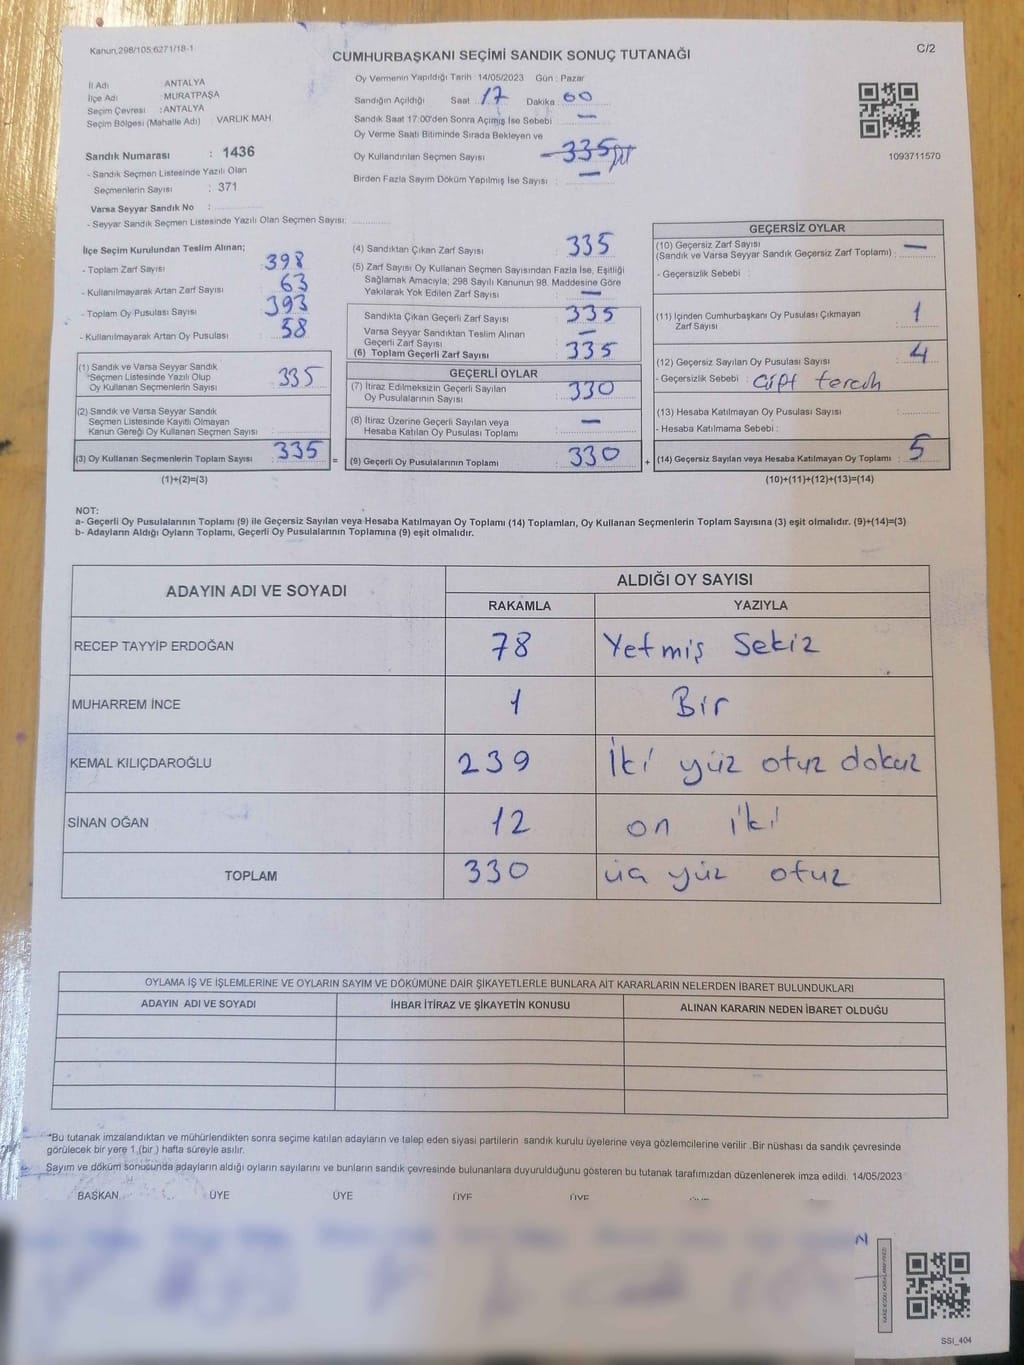 Kanun,298/105;6271/18-1
C/2
CUMHURBAŞKANI SEÇİMİ SANDIK SONUÇ TUTANAĞI
İl Adı : ANTALYA
İlçe Adı : MURATPAŞA
Seçim Çevresi : ANTALYA
Seçim Bölgesi (Mahalle Adı) : VARLIK MAH.
Sandık Numarası : 1436
- Sandık Seçmen Listesinde Yazılı Olan
Seçmenlerin Sayısı : 371
Varsa Seyyar Sandık No :
- Seyyar Sandık Seçmen Listesinde Yazılı Olan Seçmen Sayısı:
Oy Vermenin Yapıldığı Tarih : 14/05/2023 Gün : Pazar
Sandığın Açıldığı Saat 17 Dakika 00
Sandık Saat 17:00'den Sonra Açılmış İse Sebebi : —
Oy Verme Saati Bitiminde Sırada Bekleyen ve
Oy Kullandırılan Seçmen Sayısı : 335
Birden Fazla Sayım Döküm Yapılmış İse Sayısı : —
1093711570
İlçe Seçim Kurulundan Teslim Alınan;
- Toplam Zarf Sayısı : 398
- Kullanılmayarak Artan Zarf Sayısı : 63
- Toplam Oy Pusulası Sayısı : 393
- Kullanılmayarak Artan Oy Pusulası : 58
(1) Sandık ve Varsa Seyyar Sandık
Seçmen Listesinde Yazılı Olup
Oy Kullanan Seçmenlerin Sayısı : 335
(2) Sandık ve Varsa Seyyar Sandık
Seçmen Listesinde Kayıtlı Olmayan
Kanun Gereği Oy Kullanan Seçmen Sayısı :
(3) Oy Kullanan Seçmenlerin Toplam Sayısı : 335
(1)+(2)=(3)
(4) Sandıktan Çıkan Zarf Sayısı : 335
(5) Zarf Sayısı Oy Kullanan Seçmen Sayısından Fazla İse, Eşitliği
Sağlamak Amacıyla; 298 Sayılı Kanunun 98. Maddesine Göre
Yakılarak Yok Edilen Zarf Sayısı : —
Sandıkta Çıkan Geçerli Zarf Sayısı : 335
Varsa Seyyar Sandıktan Teslim Alınan
Geçerli Zarf Sayısı : —
(6) Toplam Geçerli Zarf Sayısı : 335
GEÇERLİ OYLAR
(7) İtiraz Edilmeksizin Geçerli Sayılan
Oy Pusulalarının Sayısı : 330
(8) İtiraz Üzerine Geçerli Sayılan veya
Hesaba Katılan Oy Pusulası Toplamı : —
= (9) Geçerli Oy Pusulalarının Toplamı : 330 +
GEÇERSİZ OYLAR
(10) Geçersiz Zarf Sayısı
(Sandık ve Varsa Seyyar Sandık Geçersiz Zarf Toplamı) : —
- Geçersizlik Sebebi :
(11) İçinden Cumhurbaşkanı Oy Pusulası Çıkmayan
Zarf Sayısı : 1
(12) Geçersiz Sayılan Oy Pusulası Sayısı : 4
- Geçersizlik Sebebi : Çift tercih
(13) Hesaba Katılmayan Oy Pusulası Sayısı :
- Hesaba Katılmama Sebebi :
(14) Geçersiz Sayılan veya Hesaba Katılmayan Oy Toplamı : 5
(10)+(11)+(12)+(13)=(14)
NOT:
a- Geçerli Oy Pusulalarının Toplamı (9) ile Geçersiz Sayılan veya Hesaba Katılmayan Oy Toplamı (14) Toplamları, Oy Kullanan Seçmenlerin Toplam Sayısına (3) eşit olmalıdır. (9)+(14)=(3)
b- Adayların Aldığı Oyların Toplamı, Geçerli Oy Pusulalarının Toplamına (9) eşit olmalıdır.
ADAYIN ADI VE SOYADI
ALDIĞI OY SAYISI
RAKAMLA YAZIYLA
RECEP TAYYİP ERDOĞAN 78 Yetmiş Sekiz
MUHARREM İNCE 1 Bir
KEMAL KILIÇDAROĞLU 239 İki yüz otuz dokuz
SİNAN OĞAN 12 on iki
TOPLAM 330 üç yüz otuz
OYLAMA İŞ VE İŞLEMLERİNE VE OYLARIN SAYIM VE DÖKÜMÜNE DAİR ŞİKAYETLERLE BUNLARA AİT KARARLARIN NELERDEN İBARET BULUNDUKLARI
ADAYIN ADI VE SOYADI İHBAR İTİRAZ VE ŞİKAYETİN KONUSU ALINAN KARARIN NEDEN İBARET OLDUĞU
*Bu tutanak imzalandıktan ve mühürlendikten sonra seçime katılan adayların ve talep eden siyasi partilerin sandık kurulu üyelerine veya gözlemcilerine verilir .Bir nüshası da sandık çevresinde
görülecek bir yere 1 (bir ) hafta süreyle asılır.
Sayım ve döküm sonucunda adayların aldığı oyların sayılarını ve bunların sandık çevresinde bulunanlara duyurulduğunu gösteren bu tutanak tarafımızdan düzenlenerek imza edildi. 14/05/2023
BAŞKAN ÜYE ÜYE ÜYE ÜYE
SSI_404